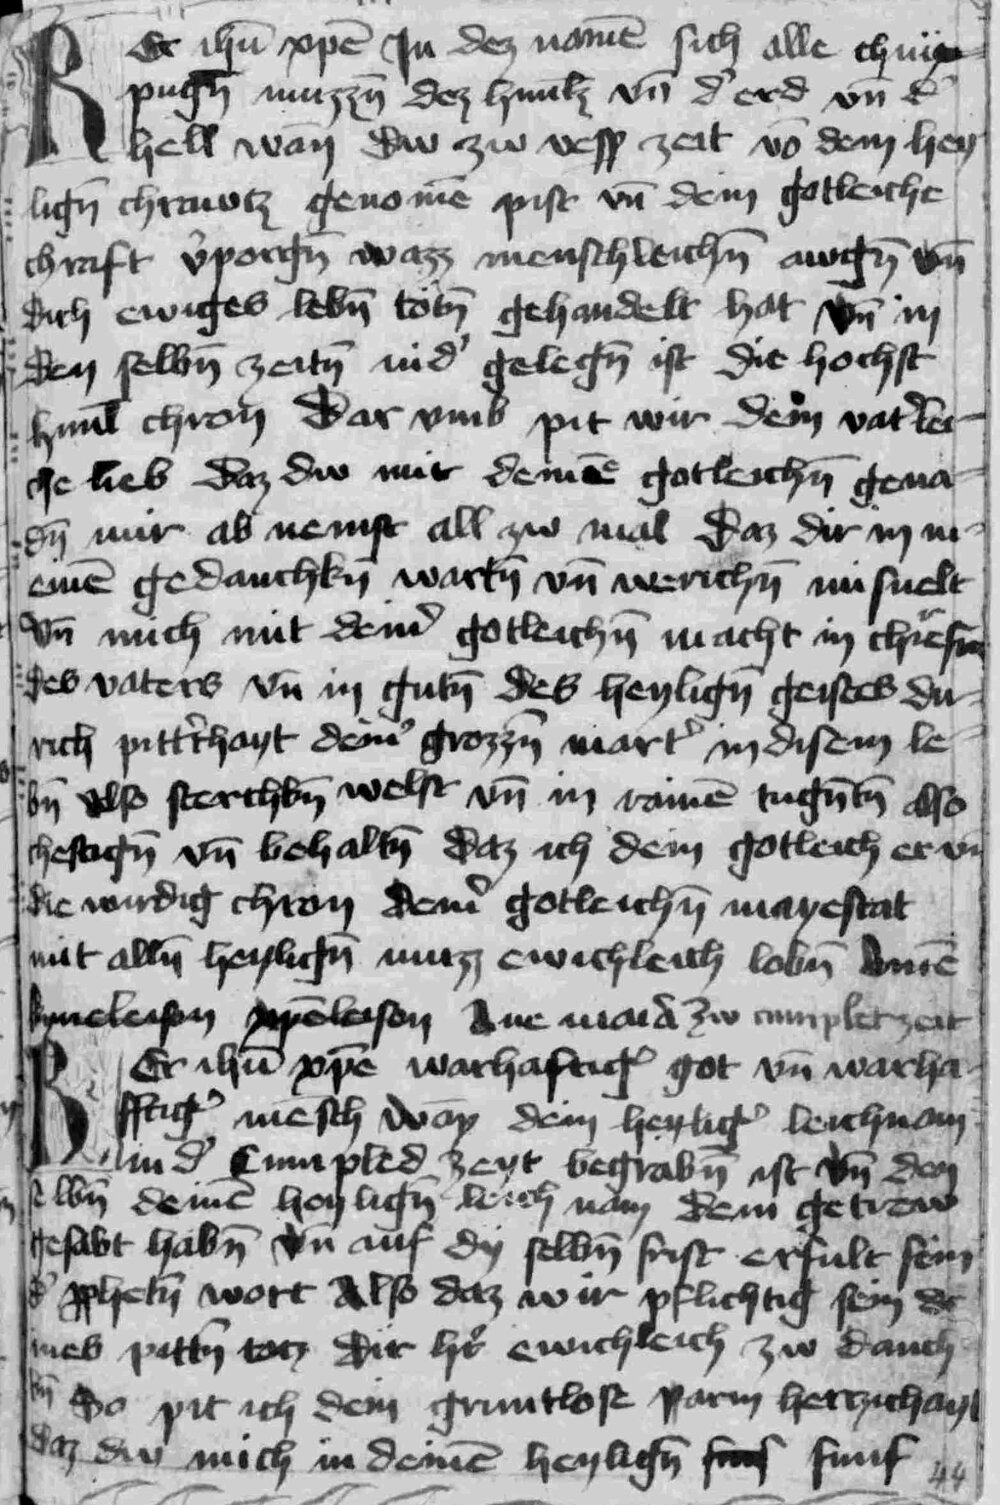 Er ihū xp̄e In dez namē sich alle chnÿe
pugn̄ muzzn̄ dez himlz vn̄ d' erd vn̄ d'
hell wan̄ dw zw vesp zeit vō dem hey
lign̄ chrawtz genomē pist vn̄ dein gotleiche
chraft v'porgn̄ wazz menschleichn̄ awgn̄ vn̄
dich ewiges lebn̄ totn̄ gehandelt hat vn̄ in
den selbn̄ zeitn̄ nid' gelegn̄ ist die hochst
himl chron Dar vmb pit wir dein vat'lei-
che lieb daz dw mit deinē gotleichn̄ gena-
dn̄ mir ab nemst all zw mal Daz dir in m-
einē gedanchkn̄ wartn̄ vn̄ werichn̄ misuelt
vn̄ mich mit dein' gotleichn̄ macht in
des vaters vn̄ in gutn̄ des heylign̄ geistes du-
rich pitt'chayt dein' grozzn̄ mart' in disem le-
bn̄ also sterchkn̄ welst vn̄ in rainē tugn̄tn̄ also
chestign̄ vn̄ behaltn̄ Daz ich dein gotleich er vn̄
die wirdig chron dein' gotleichn̄ mayestat
mit alln̄ heylign̄ muzz ewichleich lobn̄ Amē
kyrieleison xp̄eleison Aue maria zw cumplet zeit
Er ihū xp̄e warhaftig' got vn̄ warha-
fftig' mēsch wan̄ dein heylig' leichnam
in d' Cumpled zeyt begrabn̄ ist vn̄ den
selbn̄ deinē heylign̄ leich nam dein getrew
gesalbt habn̄ vn̄ auf dy selbn̄ frist erfult sein
d' pphetn̄ wort Also daz wir pflichtig sein de
ines pittn̄ totz Dir h'r ewichleich zw danch
kn̄ So pit ich dein gruntlose parm hertzichayt
daz dw mich in deinē heylign̄ funf
44